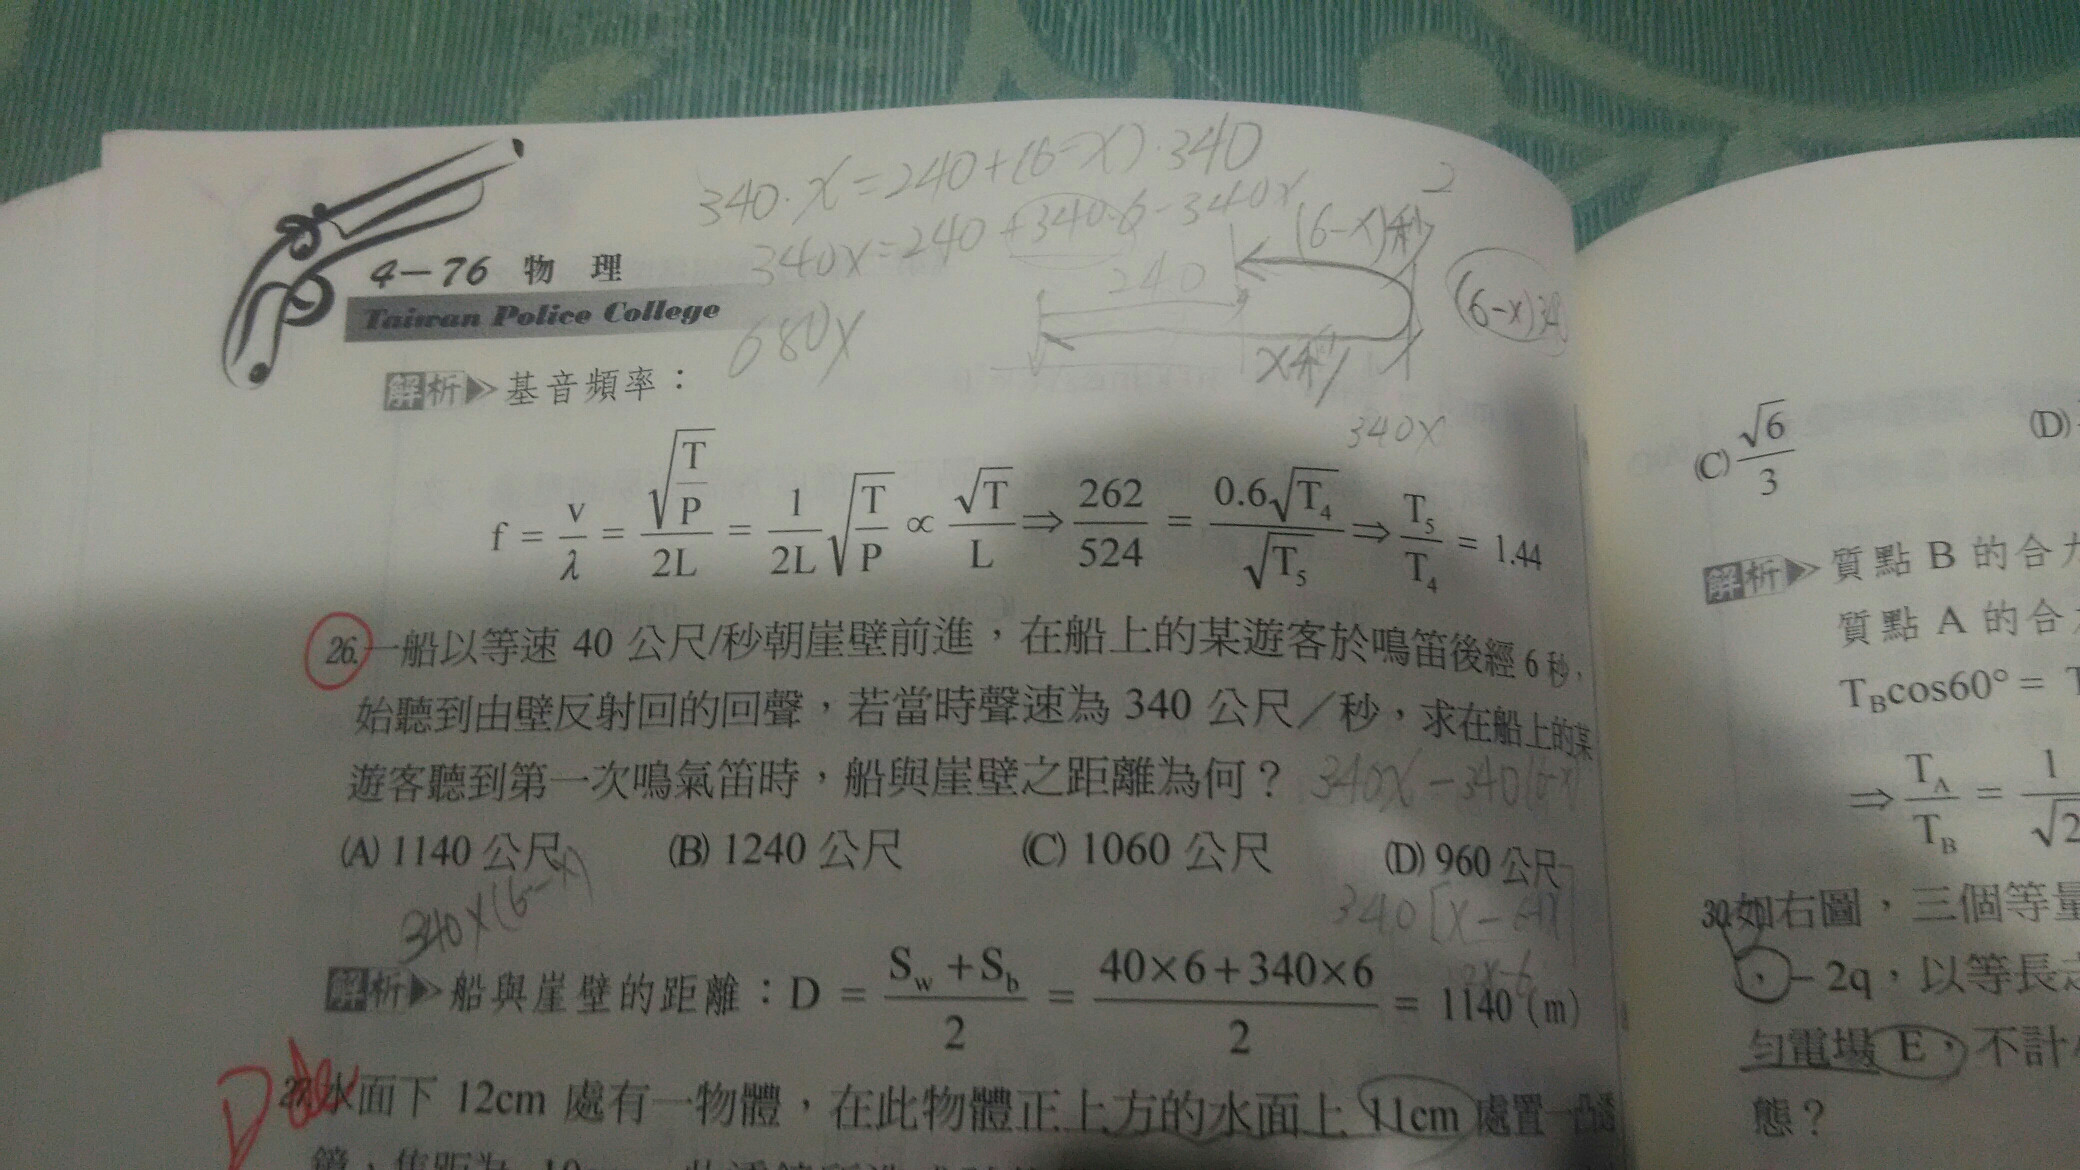 340·x=240+(6-x)·340
340x=240+340·6-340x
2
(6-x)秒
4－76 物 理
240
(6-x)34
Taiwan Police College
680x
x秒
解析 基音頻率：
340x
f = v/λ = √(T/P)/2L = 1/2L √(T/P) ∝ √T/L ⇒ 262/524 = 0.6√T₄/√T₅ ⇒ T₅/T₄ = 1.44
26.一船以等速 40 公尺/秒朝崖壁前進，在船上的某遊客於鳴笛後經 6 秒，
始聽到由壁反射回的回聲，若當時聲速為 340 公尺／秒，求在船上的某
遊客聽到第一次鳴氣笛時，船與崖壁之距離為何？
340x-340(6-x)
(A) 1140 公尺 (B) 1240 公尺 (C) 1060 公尺 (D) 960 公尺
340x(6-x)
解析 船與崖壁的距離：D = (Sw + Sb)/2 = (40×6+340×6)/2 = 1140 (m)
27.水面下 12cm 處有一物體，在此物體正上方的水面上 11cm 處置一凸透
(C) √6/3
(D)
解析 質點 B 的合
質點 A 的合
T_B cos60° =
⇒ T_A/T_B = 1/√2
30.如右圖，三個等量
，－2q，以等長
勻電場 E，不計
態？